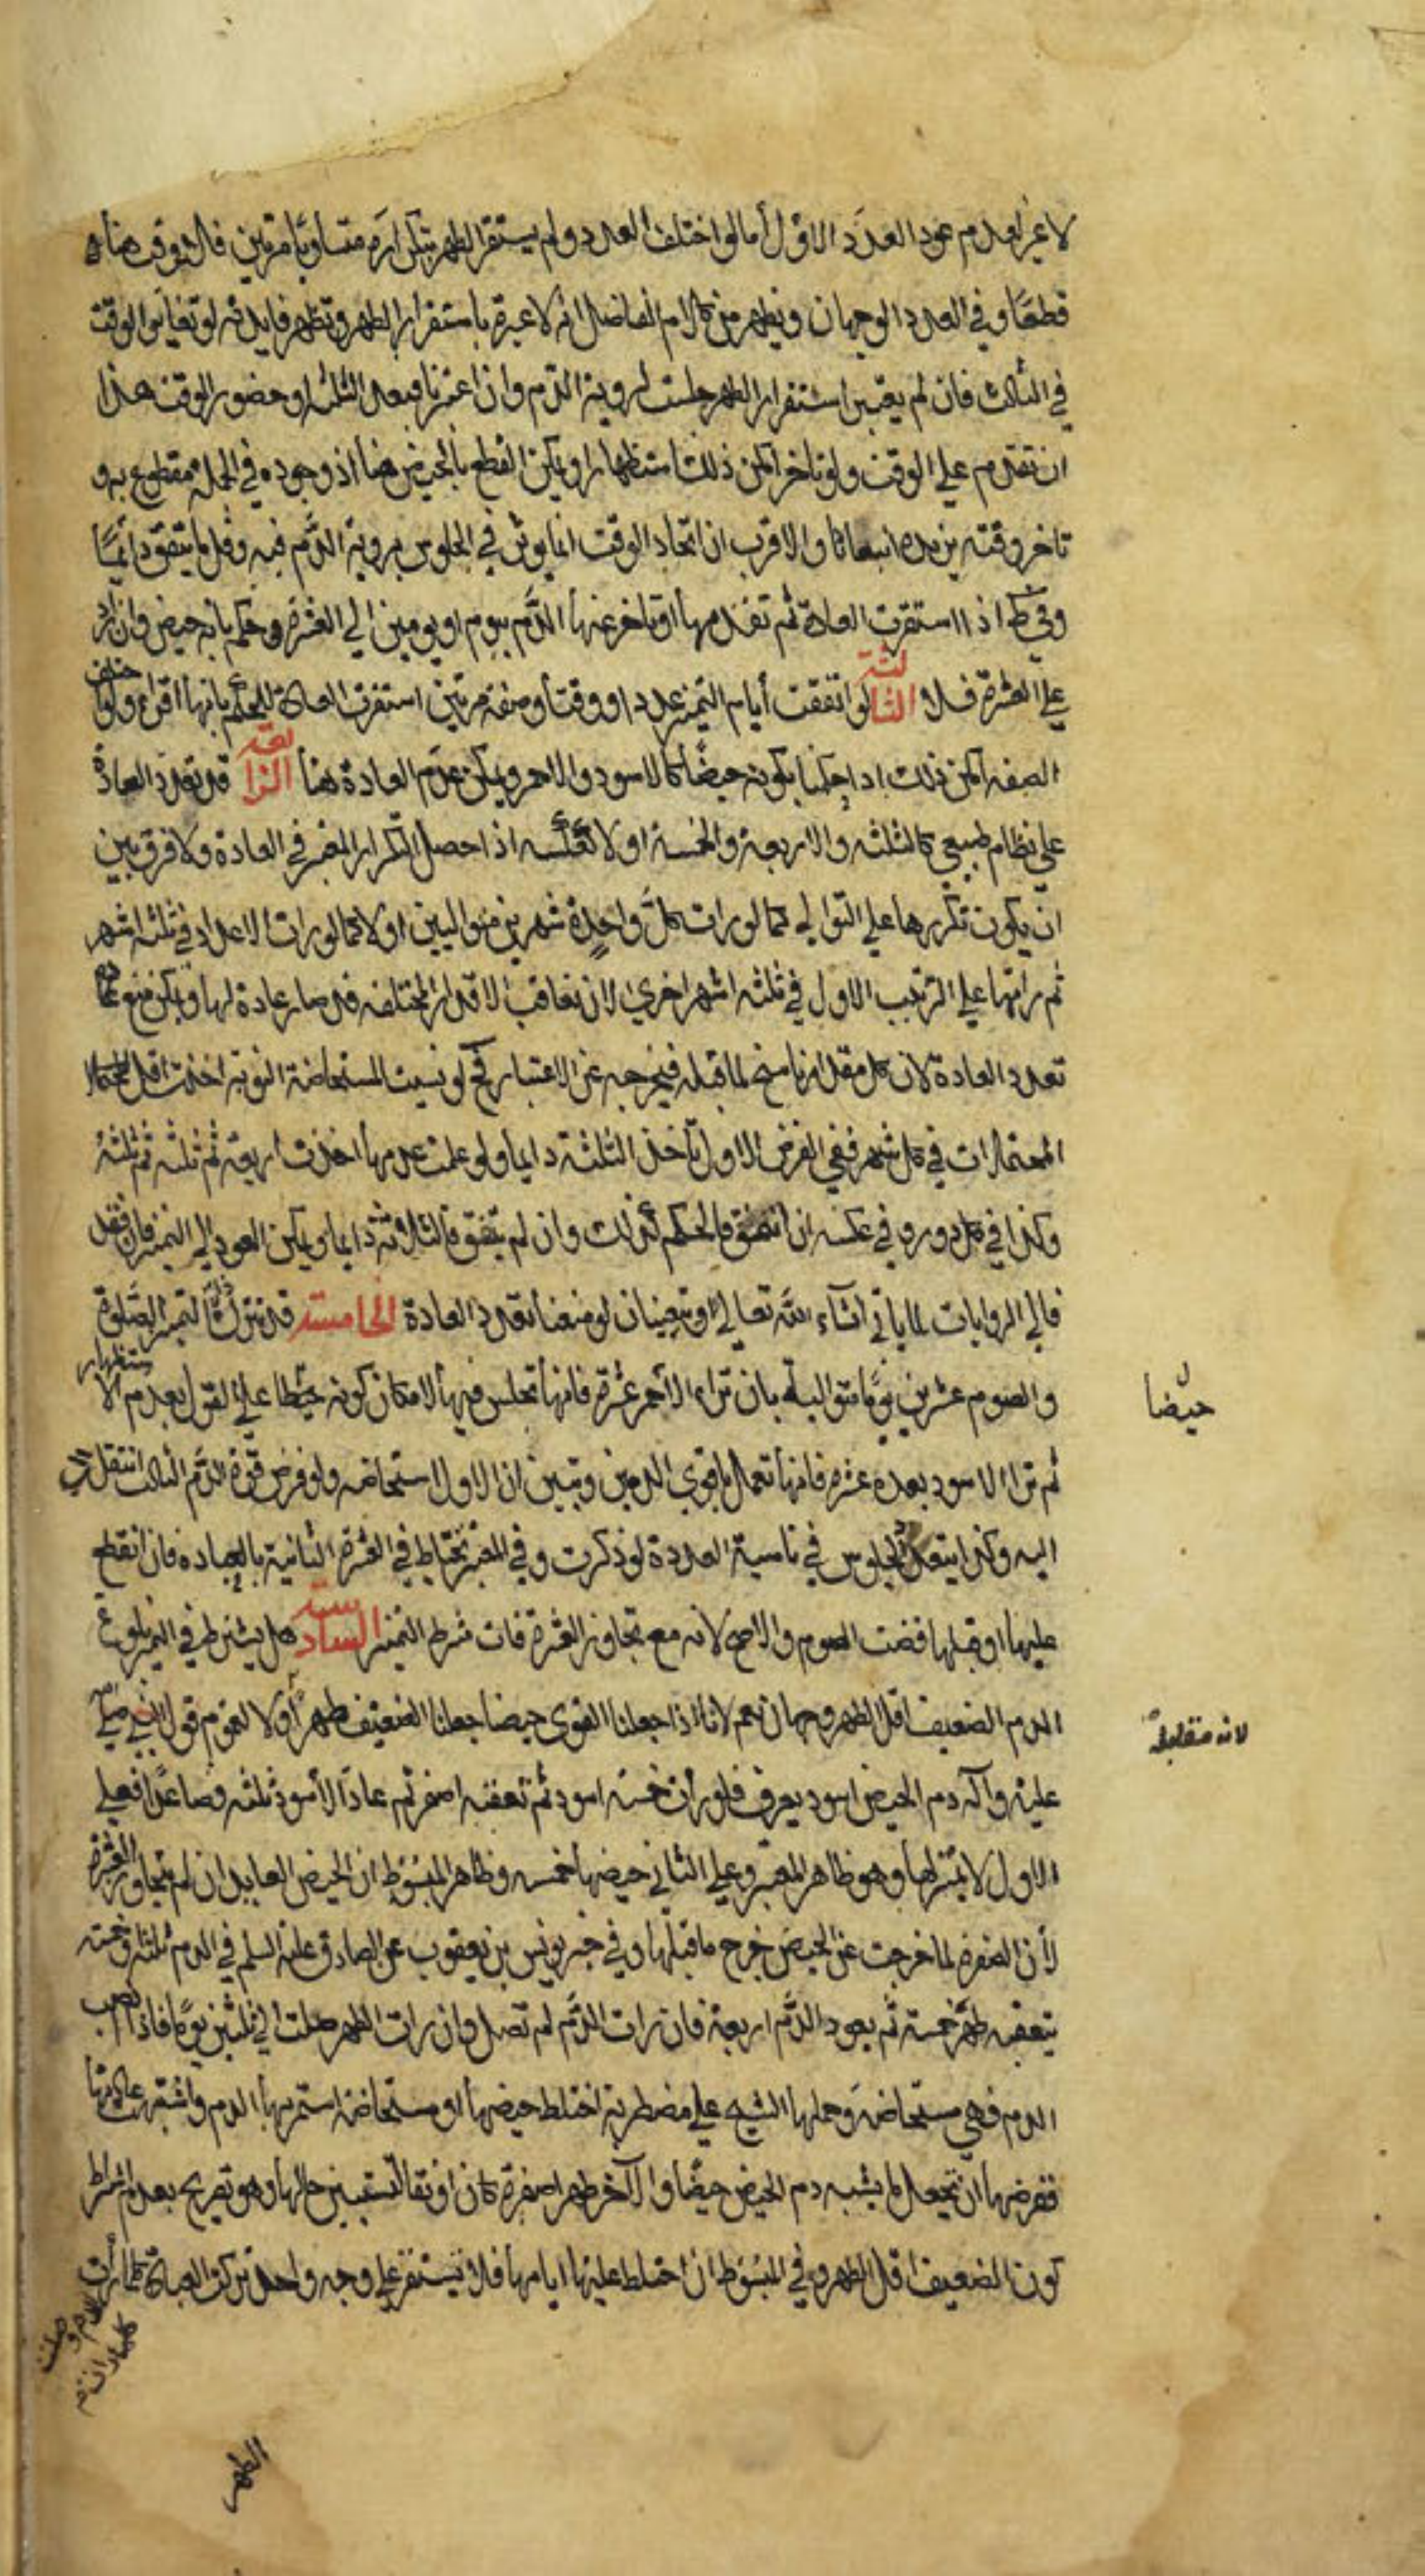 لا غير لعدم عود العدد الاول أما لو اختلف العدد ولم يستقر الطهر بتكراره متساويا مرتين فالوقت هنا
قطعا وفي العدد الوجهان ويظهر من كلام الفاضل انه لا عبرة باستقرار الطهر وتظهر فايدته لو تغاير الوقت
في الثالث فان لم يعتبر استقرار الطهر جلست لروية الدم وان اعتبرنا فبعد الثلثة او حضور الوقت هذا
ان تقدم على الوقت ولو تاخر امكن ذلك استظهارا ويمكن القطع بالحيض هنا اذ وجوده في الجملة مقطوع به و
تاخر وقته يزيده انبعاثا والاقرب ان اتحاد الوقت انما يوثر في الجلوس بروية الدم فيه وقل ما يتفق دايما
وفي ط اذا استقرت العادة ثم تقدمها او تاخر عنها الدم بيوم او يومين الى العشرة حكم بانه حيض وان زاد
على العشرة فلا الثالثة لو اتفقت أيام التميز عددا ووقتا وصفة مرتين استقرت العادة للحكم بانها اقراء ولو اختلف
الصفه امكن ذلك اذا حكمنا بكونه حيضا كالاسود والاحمر ويمكن عدم العادة هنا الرابعة قد تعدد العادة
على نظام طبيعي كالثلثه والاربعة والخمسة او لا كعكسه اذا حصل التكرار المعتبر في العادة ولا فرق بين
ان يكون تكررها على التوالي كما لو رات كل واحدة شهرين متواليين او لا كما لو رات الاعداد في ثلثه اشهر
ثم راتها على الترتيب الاول في ثلثه اشهر اخرى لان تعاقب الاقدار المختلفه قد صار عادة لها ويمكن منع
تعدد العادة لان كل مقدار ناسخ لما قبله فيخرجه عن الاعتبار فح لو نسيت المستحاضة النوبة اخذت اقل
المحتملات في كل شهر ففي الفرض الاول تاخذ الثلثة دايما ولو علمت عدمها اخذت اربعة ثم ثلثه ثم ثلثة
وكذا في كل دور وفي عكسه ان اتفق فالحكم كذلك وان لم يتفق فالثلاثة دايما ويمكن العود الى التميز فان فقد
فالى الروايات لما ياتي انشاء الله تعالى او تعينان لو منعنا تعدد العادة الخامسة قد تترك ذات التميز الصلوة
والصوم عشرين يوما متوالية بان ترى الاحمر عشرة فانها تجلس فيها لامكان كونه حيضا على القول بعدم الاستظهار
حيضا
ثم ترا الاسود بعده عشرة فانها تعمل باقوى الدمين وتبين ان الاول استحاضه ولو فرض قوة الدم الثالث انتقلت
اليه وكذا يتعدد الجلوس في ناسية العدد لو ذكرت وفي المعتبر تحتاط في العشرة الثانية بالعباده فان انقطع
عليها او قبلها قضت الصوم والاصح لا نه مع تجاوز العشرة فات شرط التميز السادسة هل يشترط في التميز بلوغ
الدم الضعيف اقل الطهر وجهان نعم لانا اذا جعلنا القوى حيضا جعلنا الضعيف طهرا او لا لعموم قول النبي صلى
لانه مقابله
عليه وآله دم الحيض اسود يعرف فلو رات خمسه اسود ثم تعقبه اصفر ثم عاد الاسود ثلثه فصاعدا فعلى
الاول لا تميز لها وهو ظاهر المعتبر وعلى الثاني حيضها خمسه وظاهر المبسوط ان الحيض العايد ان لم يتجاوز العشرة
لأن الصفرة لما خرجت عن الحيض خرج ما قبلها وفي خبر يونس بن يعقوب عن الصادق عليه السلم في الدم ثلثة او خمسه
يتعقبه طهر خمسة ثم يعود الدم اربعة فان رات الدم لم تصل وان رات الطهر صلت الى ثلثين يوما فاذا انصب
الدم فهي مستحاضة وحملها الشيخ على مضطربة اختلط حيضها او مستحاضة استمر بها الدم واشتبهت عادتها
ففرضها ان تجعل ما يشبه دم الحيض حيضا والآخر طهرا صفرة كان او نقا لتستبين حالها وهو تصريح بعدم اشتراط
كون الضعيف اقل الطهر وفي المبسوط ان اختلط عليها ايامها فلا تستقر على وجه واحد تركت العبادة كلما رات
الدم وصلت كلما رات
الطهر